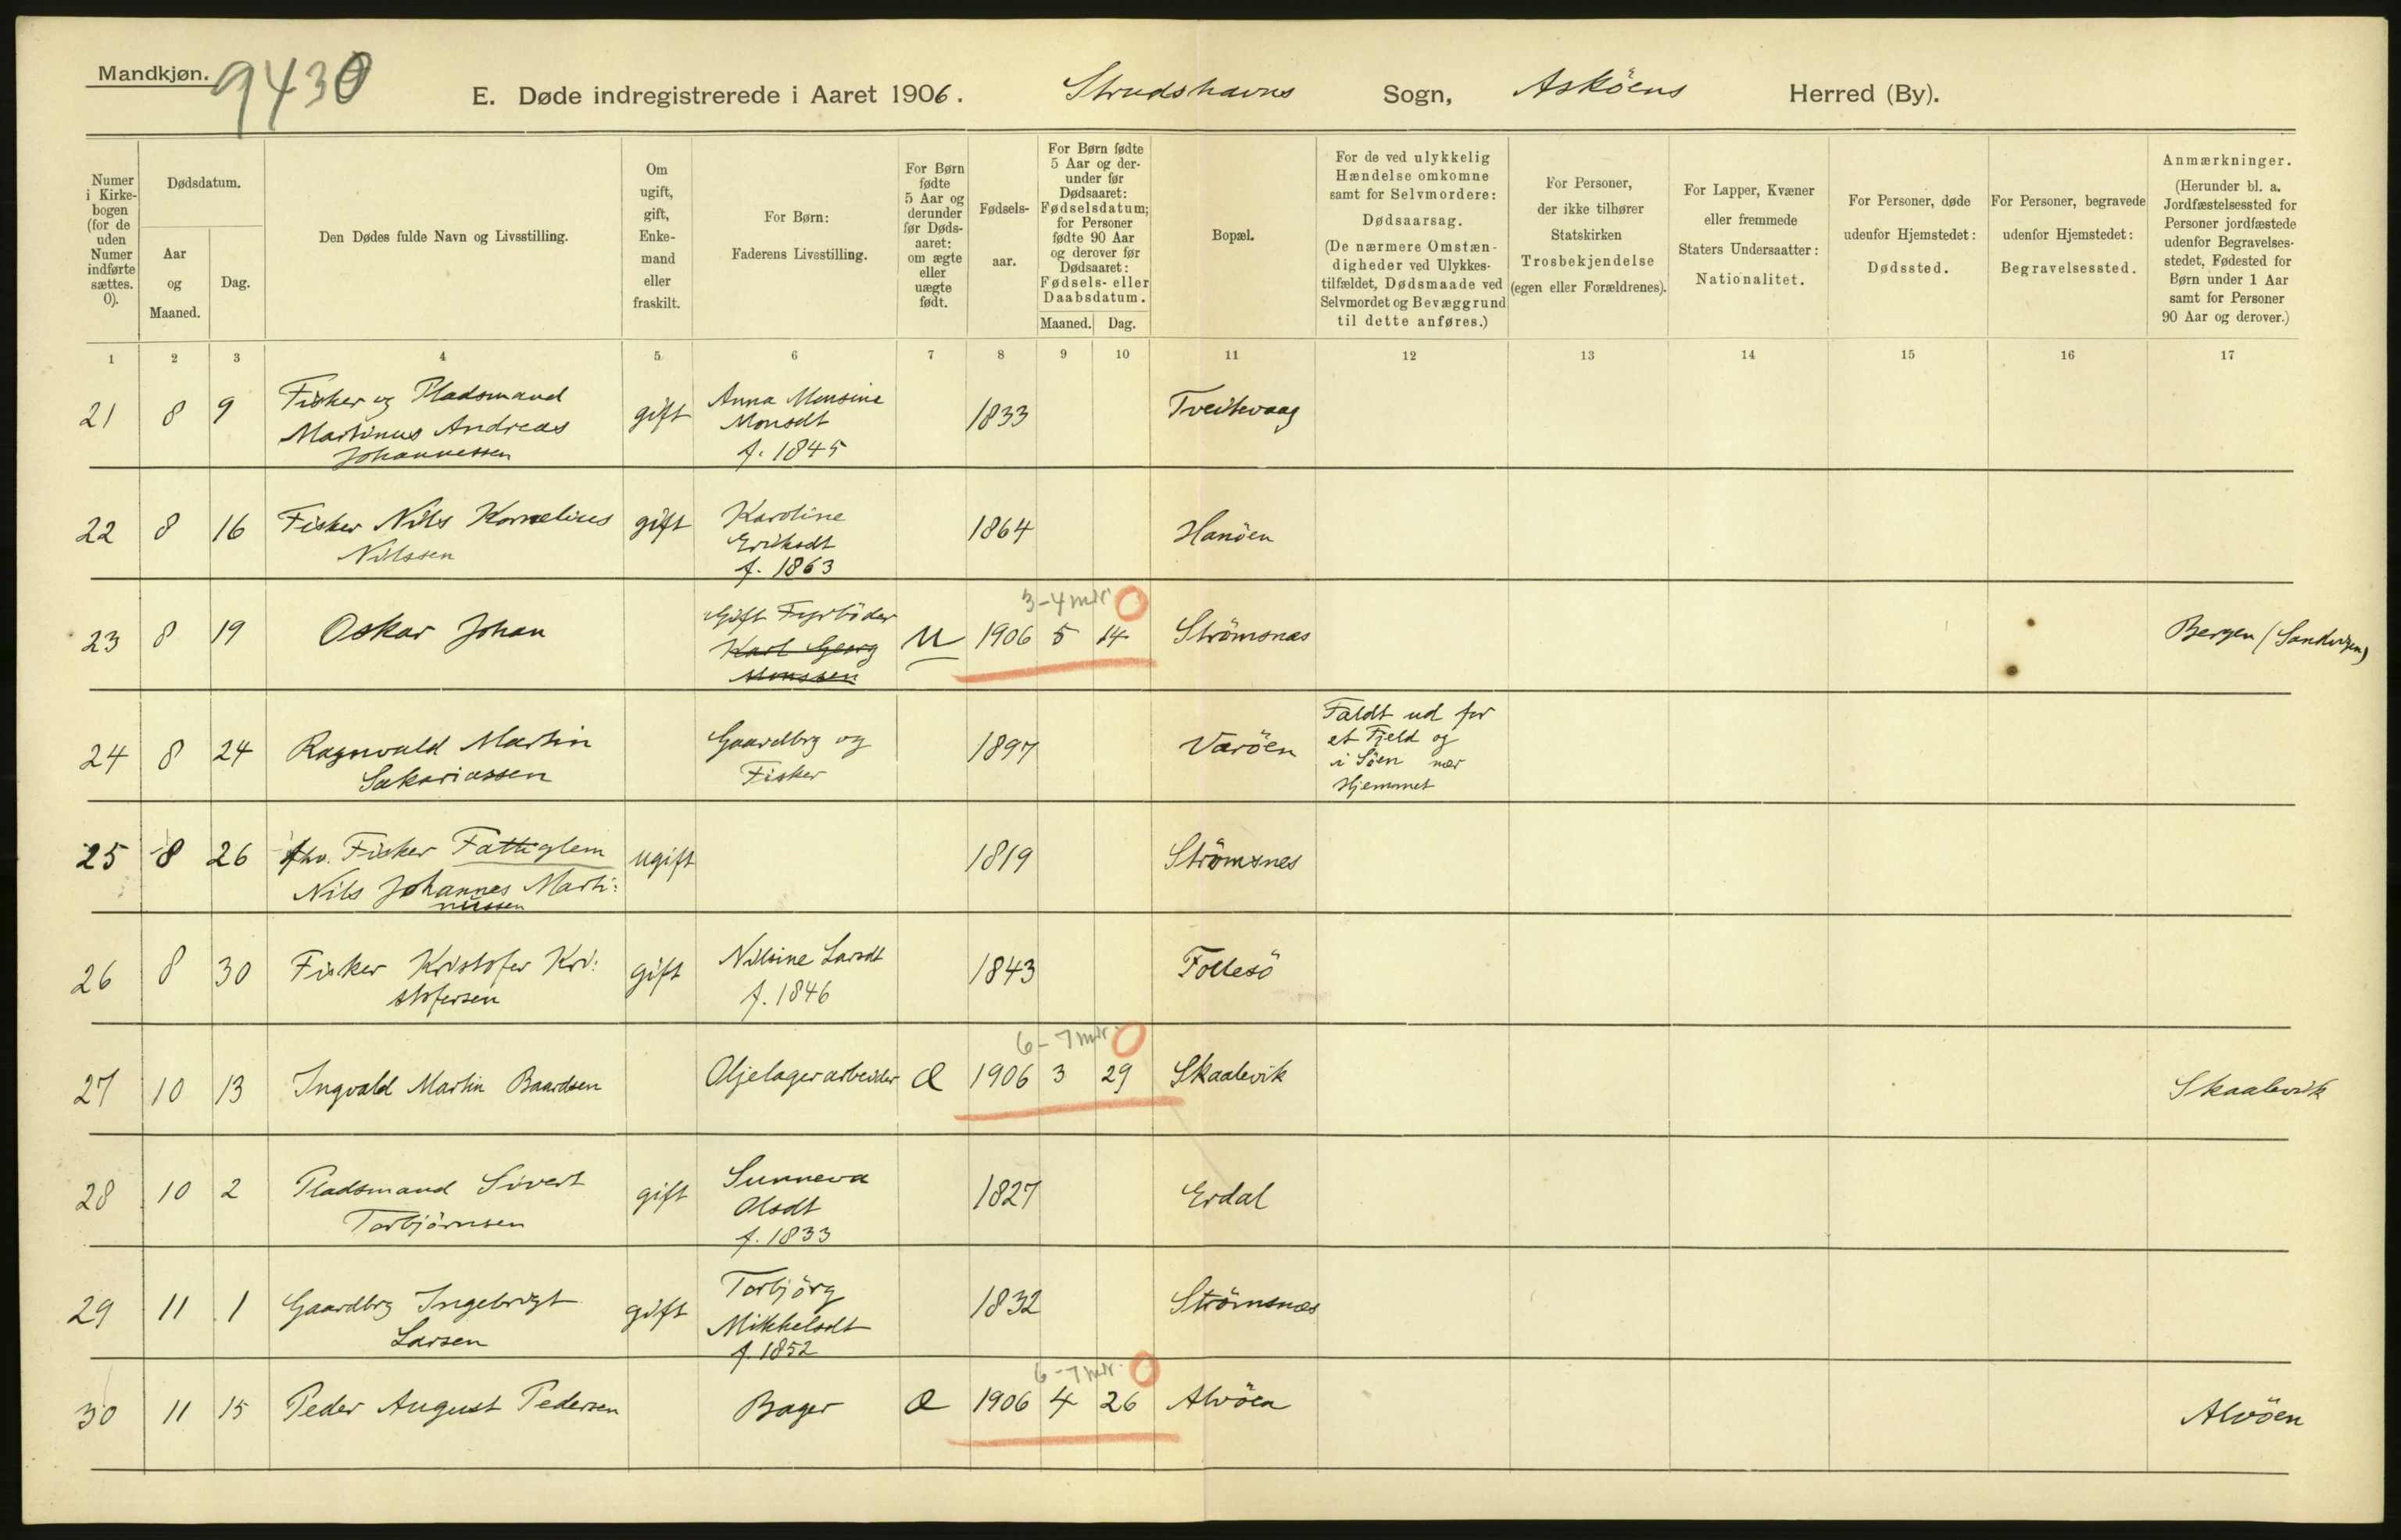 Mandkjøn.
9430
E. Døde indregistrerede i Aaret 1906. Strudshavns Sogn, Asköens Herred (By).
Numer i Kirke-bogen (for de uden Numer indførte sættes. 0).
Dødsdatum.
Aar og Maaned.
Dag.
Den Dødes fulde Navn og Livsstilling.
Om ugift, gift, Enke-mand eller fraskilt.
For Børn: Faderens Livsstilling.
For Børn fødte 5 Aar og derunder før Døds-aaret: om ægte eller uægte født.
Fødsels-aar.
For Børn fødte 5 Aar og der-under før Dødsaaret: Fødselsdatum; for Personer fødte 90 Aar og derover før Dødsaaret: Fødsels- eller Daabsdatum.
Maaned. Dag.
Bopæl.
For de ved ulykkelig Hændelse omkomne samt for Selvmordere: Dødsaarsag. (De nærmere Omstæn-digheder ved Ulykkes-tilfældet, Dødsmaade ved Selvmordet og Bevæggrund til dette anføres.)
For Personer, der ikke tilhører Statskirken Trosbekjendelse (egen eller Forældrenes).
For Lapper, Kvæner eller fremmede Staters Undersaatter: Nationalitet.
For Personer, døde udenfor Hjemstedet: Dødssted.
For Personer, begravede udenfor Hjemstedet: Begravelsessted.
Anmærkninger. (Herunder bl. a. Jordfæstelsessted for Personer jordfæstede udenfor Begravelses-stedet, Fødested for Børn under 1 Aar samt for Personer 90 Aar og derover.)
1 2 3 4 5 6 7 8 9 10 11 12 13 14 15 16 17
21 8 9 Fisker og Pladsmand gift Anna Monsine 1833 Tveitevaag
Martinus Andreas Monsdt
Johannessen f. 1845
22 8 16 Fisker Nils Kornelius gift Karoline 1864 Hanöen
Nilssen Eriksdt
f. 1863
3-4 mdr 0
23 8 19 Oskar Johan Gift Fyrböder U 1906 5 14 Strömsnæs Bergen (Sandvigen)
Karl Georg
Monssen
24 8 24 Ragnvald Martin Gaardbrg og 1897 Varöen Faldt ud for
Sakariassen Fisker et Fjeld og
i Söen nær
Hjemmet
25 8 26 fhv. Fisker Fattiglem ugift 1819 Strömsnes
Nils Johannes Marti:
nussen
26 8 30 Fisker Kristofer Kri: gift Nilsine Larsdt 1843 Follesö
stofersen f. 1846
6-7 mdr. 0
27 10 13 Ingvald Martin Baardsen Oljelagerarbeider Æ 1906 3 29 Skaalevik Skaalevik
28 10 2 Pladsmand Sivert gift Sunneva 1827 Erdal
Torbjörnsen Olsdt
f. 1833
29 11 1 Gaardbrg Ingebrigt gift Torbjörg 1832 Strömsnæs
Larsen Mikkelsdt
f. 1852
6-7 mdr. 0
30 11 15 Peder August Pedersen Bager Æ 1906 4 26 Alvöen Alvöen